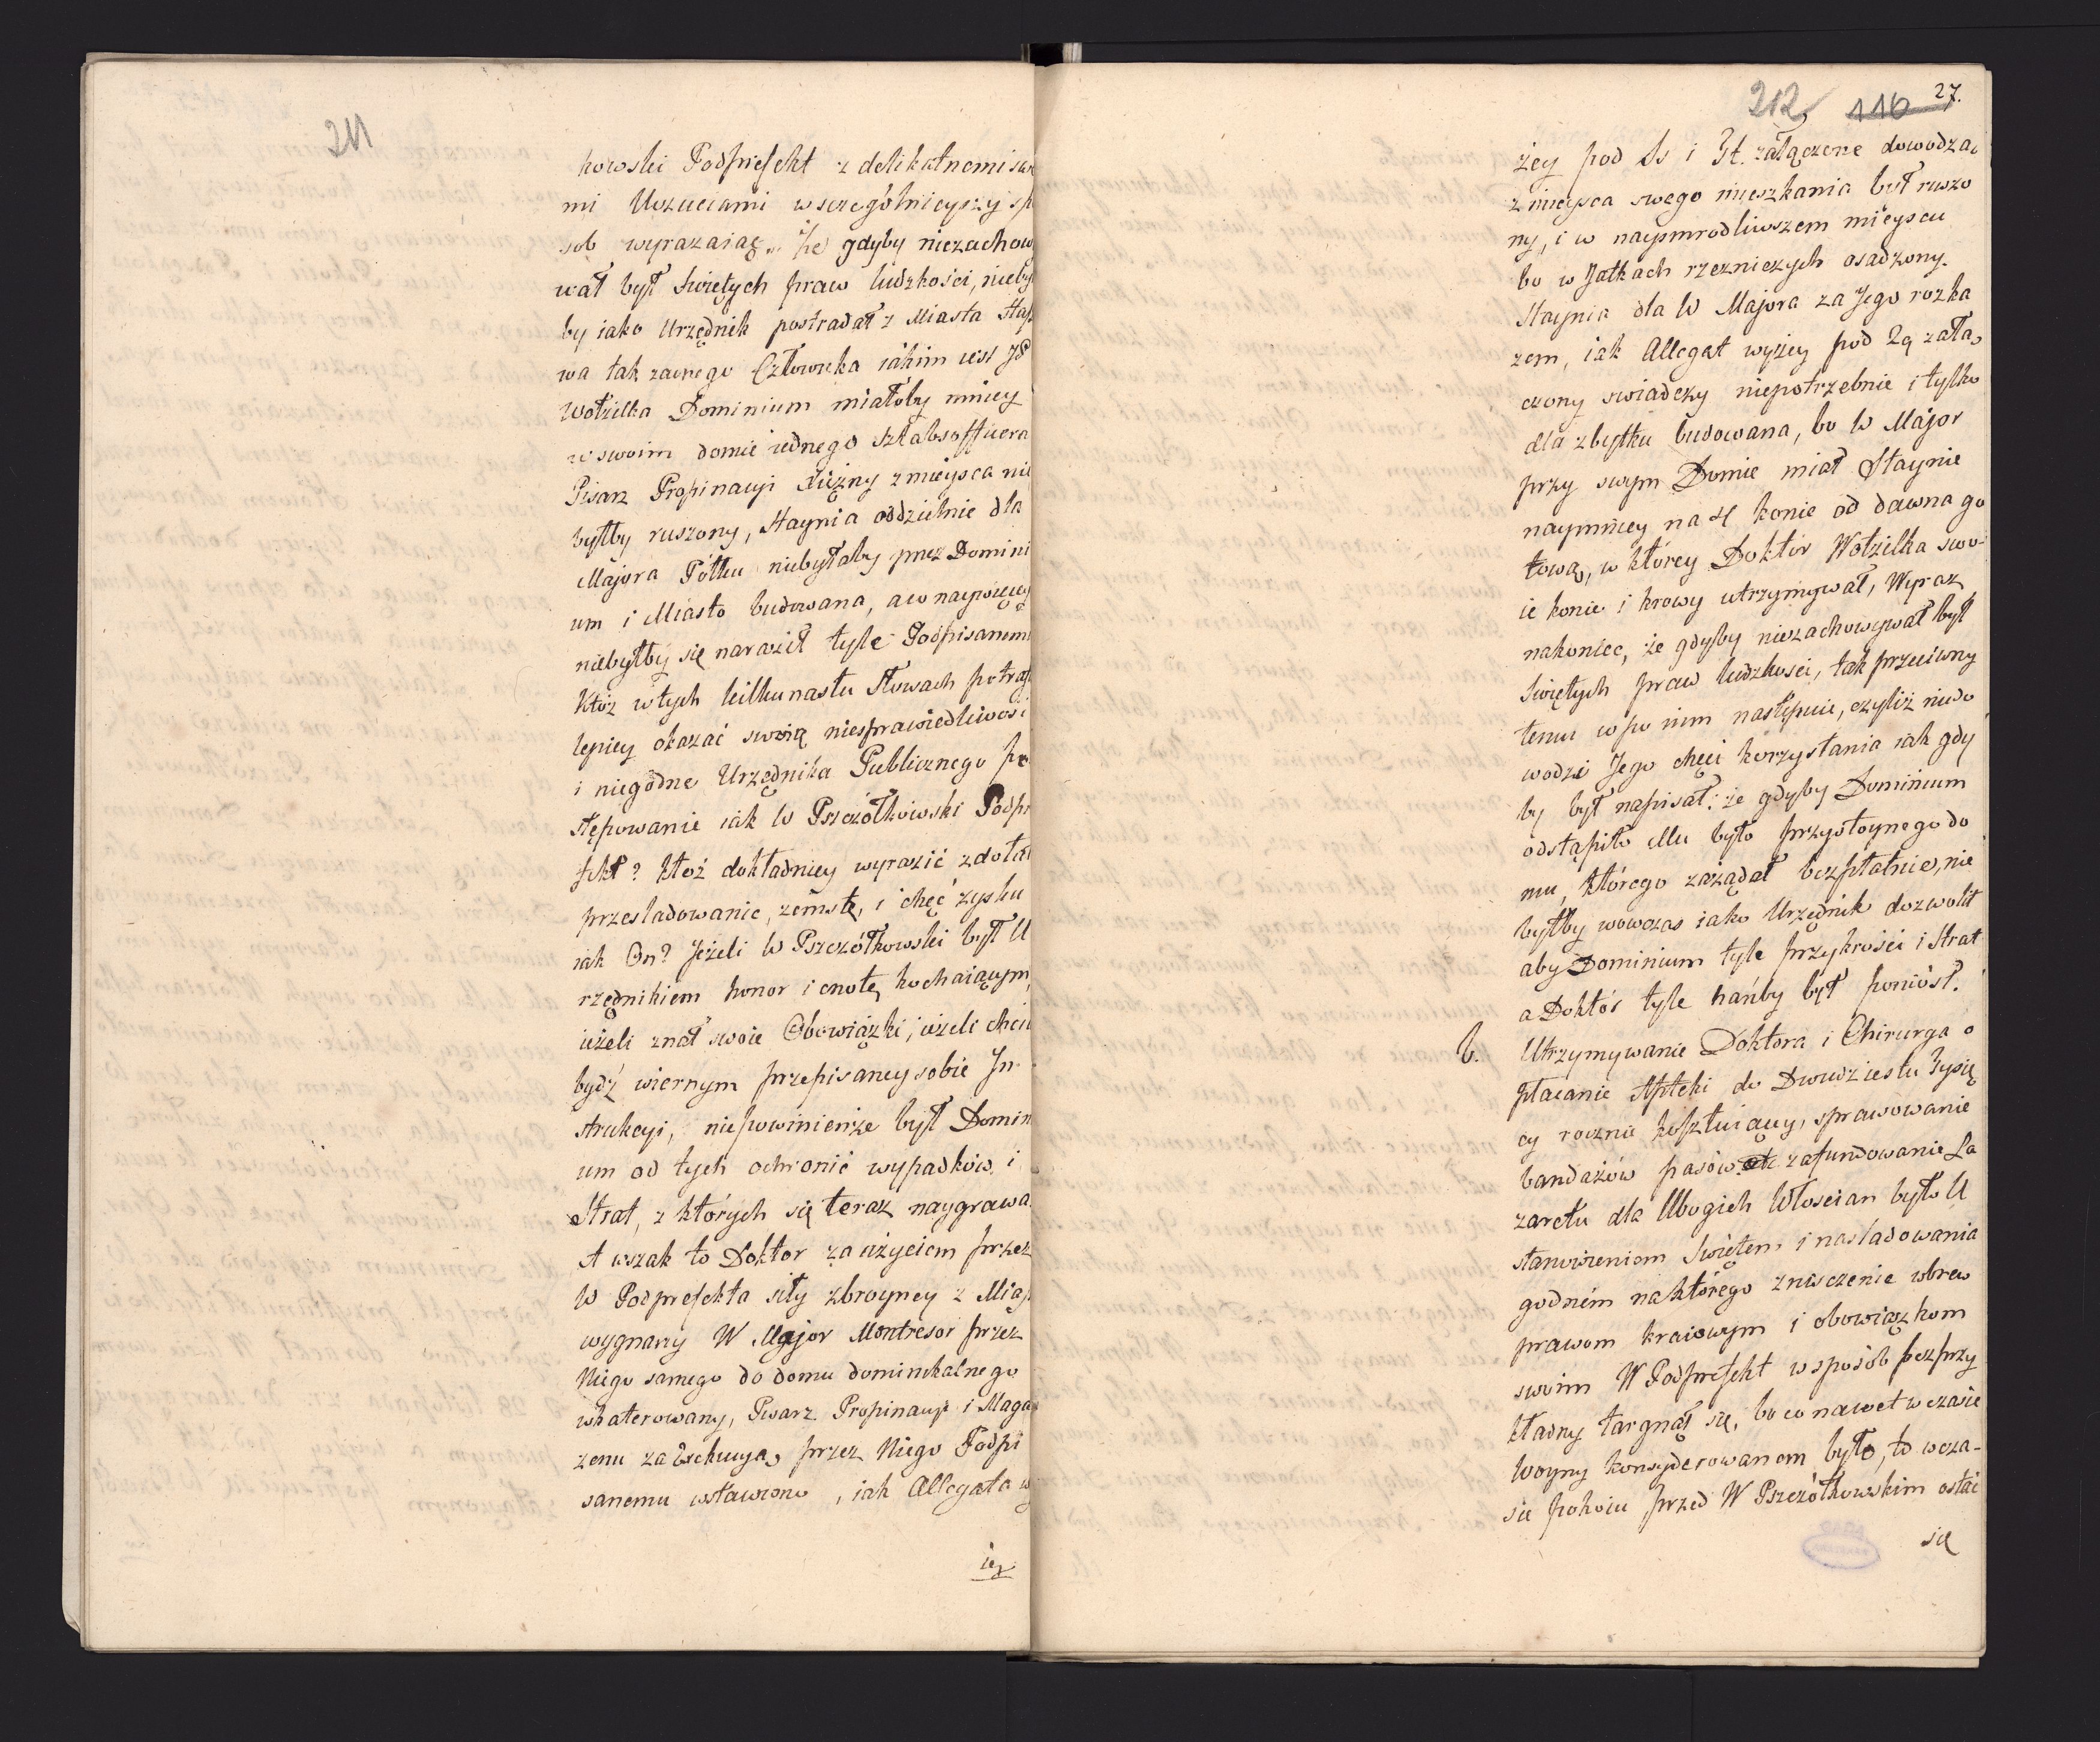 211
kowski Podprefekt z delikatnemi swe
mi Uczuciami w szczególnieyszy sp
sob wyrazaiąc „że gdyby niezachow
wał był świętych praw ludzkości, nieby
by iako Urzędnik postradał z Miasta Stap
wa tak zacnego Człowieka iakim iest JP
Wotzilka Dominium miałoby mniey
w swoim domie iednego Sztabsofficera
Pisarz Propinacyi Xiężny z mieysca nie
byłby ruszony, Staynia oddzielnie dla
Majora Półku niebyłaby przez Domini
um i Miasto budowana, a w naywięcey
niebyłby się naraził tyle Podpisanemu
Któż w tych kilkunastu słowach potraf
lepiey okazać swoią niesprawiedliwość
i niegodne Urzędnika Publicznego po
stępowanie iak W Pszczółkowski Podpr
fekt? któż dokładniey wyrazić zdołał
prześladowanie, zemstę, i chęć zysku
iak On? Jeżeli W Pszczółkowski był U
rzędnikiem honor i cnotę kochaiącym,
ieżeli znał swoie Obowiązki, ieżeli chciał
bydź wiernym przepisaney sobie In
strukcyi, niepowinienże był Domin
um od tych ochronić wypadków i
Strat, z których się teraz naygrawa.
A wszak to Doktor za użyciem przez
W Podprefekta siły zbroyney z Mias
wygnany W Major Montresor przez
Niego samego do domu dominikalnego
wkaterowany, Pisarz Propinacyi i Maga
zenu za Exekucyą przez Niego Podpi
sanemu wstawiono, iak Allegata w
iey
212 116 27.
żey pod Ss i Tt. załączone dowodzą
z mieysca swego mieszkania był ruszo
ny, i w naysmrodliwszem mieyscu
bo w Jatkach rzezniczych osadzony.
Staynia dla W Majora za Jego rozka
zem, iak Allegat wyżey pod Qq załą
czony swiadczy niepotrzebnie i tylko
dla zbytku budowana, bo W Major
przy swym Domie miał Staynie
naymniey na 4 konie od dawna go
tową, w którey Doktor Wotzilka swo-
ie konie i krowy utrzymywał, Wyraz
nakoniec, że gdyby niezachowywał był
Świętych praw ludzkości, tak przeciwny
temu co po nim następuie, czyliż niedo
wodzi Jego chęci korzystania iak gdy
by był napisał: że gdyby Dominium
odstąpiło Mu było przystoynego do
mu, którego zażądał bezpłatnie, nie
byłby wowczas iako Urzędnik dozwolił
aby Dominium tyle przykrości i Strat
a Doktór tyle hańby był poniósł.
b. Utrzymywanie Doktora i Chirurga o
płacanie Apteki do Dwudziestu Tysię
cy rocznie kosztuiący, sprawowanie
bandażów pasów etc zafundowanie La
zaretu dla Ubogich Włoscian było U
stanowieniem Świętem i nasladowania
godném na którego zniszczenie wbrew
prawom kraiowym i obowiązkom
swoim W Podprefekt w sposób bezprzy
kładny targnął się, bo co nawet w czasie
Woyny konsyderowanem było, to w cza-
sie pokoiu przed W Pszczółkowskim ostać
się